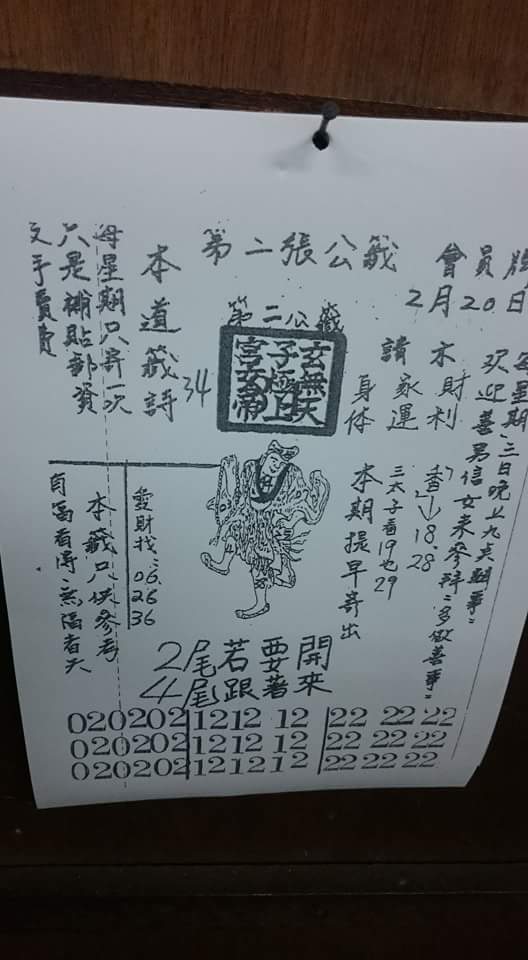 會員版
2月20日
第二張公籤
第二公籤
玄無天
子極上
宮玄帝
34
每星期三日晚上九点辦事
欢迎善男信女來參拜多做善事
求財利
請家運
身体
香
18.28
三太子看19也29
本期提早寄出
本道籤詩
每星期只寄一次
只是補貼郵資
文手費
發財找
06
26
36
本籤只供參考
有福者得無福者天
2尾若要開
4尾跟著來
020202 12 12 12 22 22 22
020202 12 12 12 22 22 22
020202 12 12 12 22 22 22